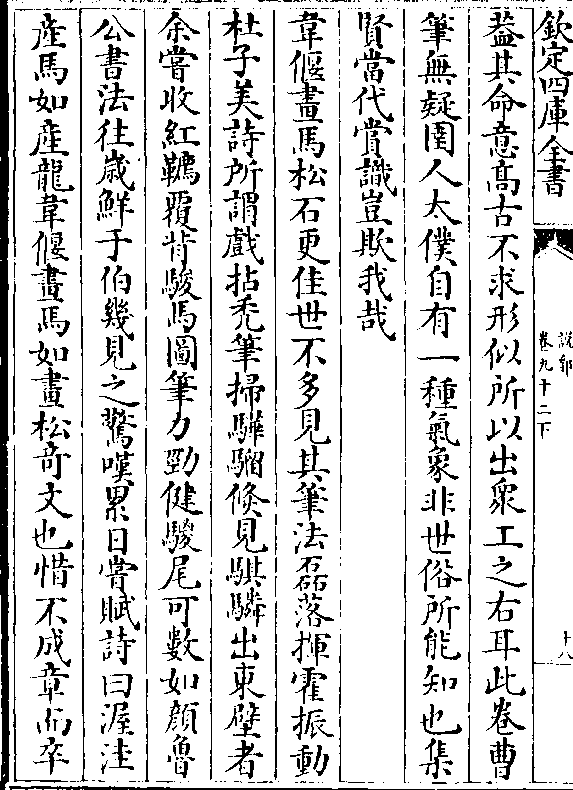 欽定四庫全書
説郛
卷九十二下
十八
葢其命意髙古不求形似所以出衆工之右耳此卷曹
筆無疑圉人太僕自有一種氣象非世俗所能知也集
賢當代賞識豈欺我哉
韋偃畫馬松石更佳世不多見其筆法磊落揮霍振動
杜子美詩所謂戲拈秃筆掃驊騮倐見騏驎出東壁者
余嘗收紅韉覆背駿馬圖筆力勁健駿尾可數如顔魯
公書法往嵗鮮于伯幾見之驚嘆累日嘗賦詩曰渥洼
産馬如産龍韋偃畫馬如畫松竒文也惜不成章而卒